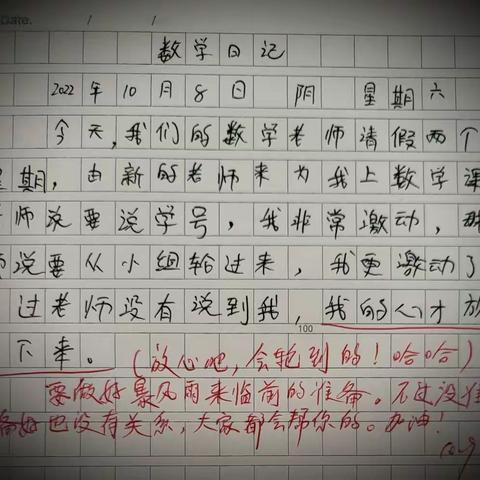 Date. / /
数学日记
2022年10月8日 阴 星期六
今天,我们的数学老师请假两个
星期,由新的老师来为我上数学课
师说要说学号,我非常激动,
师说要从小组轮过来,我更激动了
过老师没有说到我,我的心才放
100
下来。(放心吧,会轮到的!哈哈)
要做好暴风雨来临前的准备。不过没准
备好也没有关系,大家都会帮你的。加油!